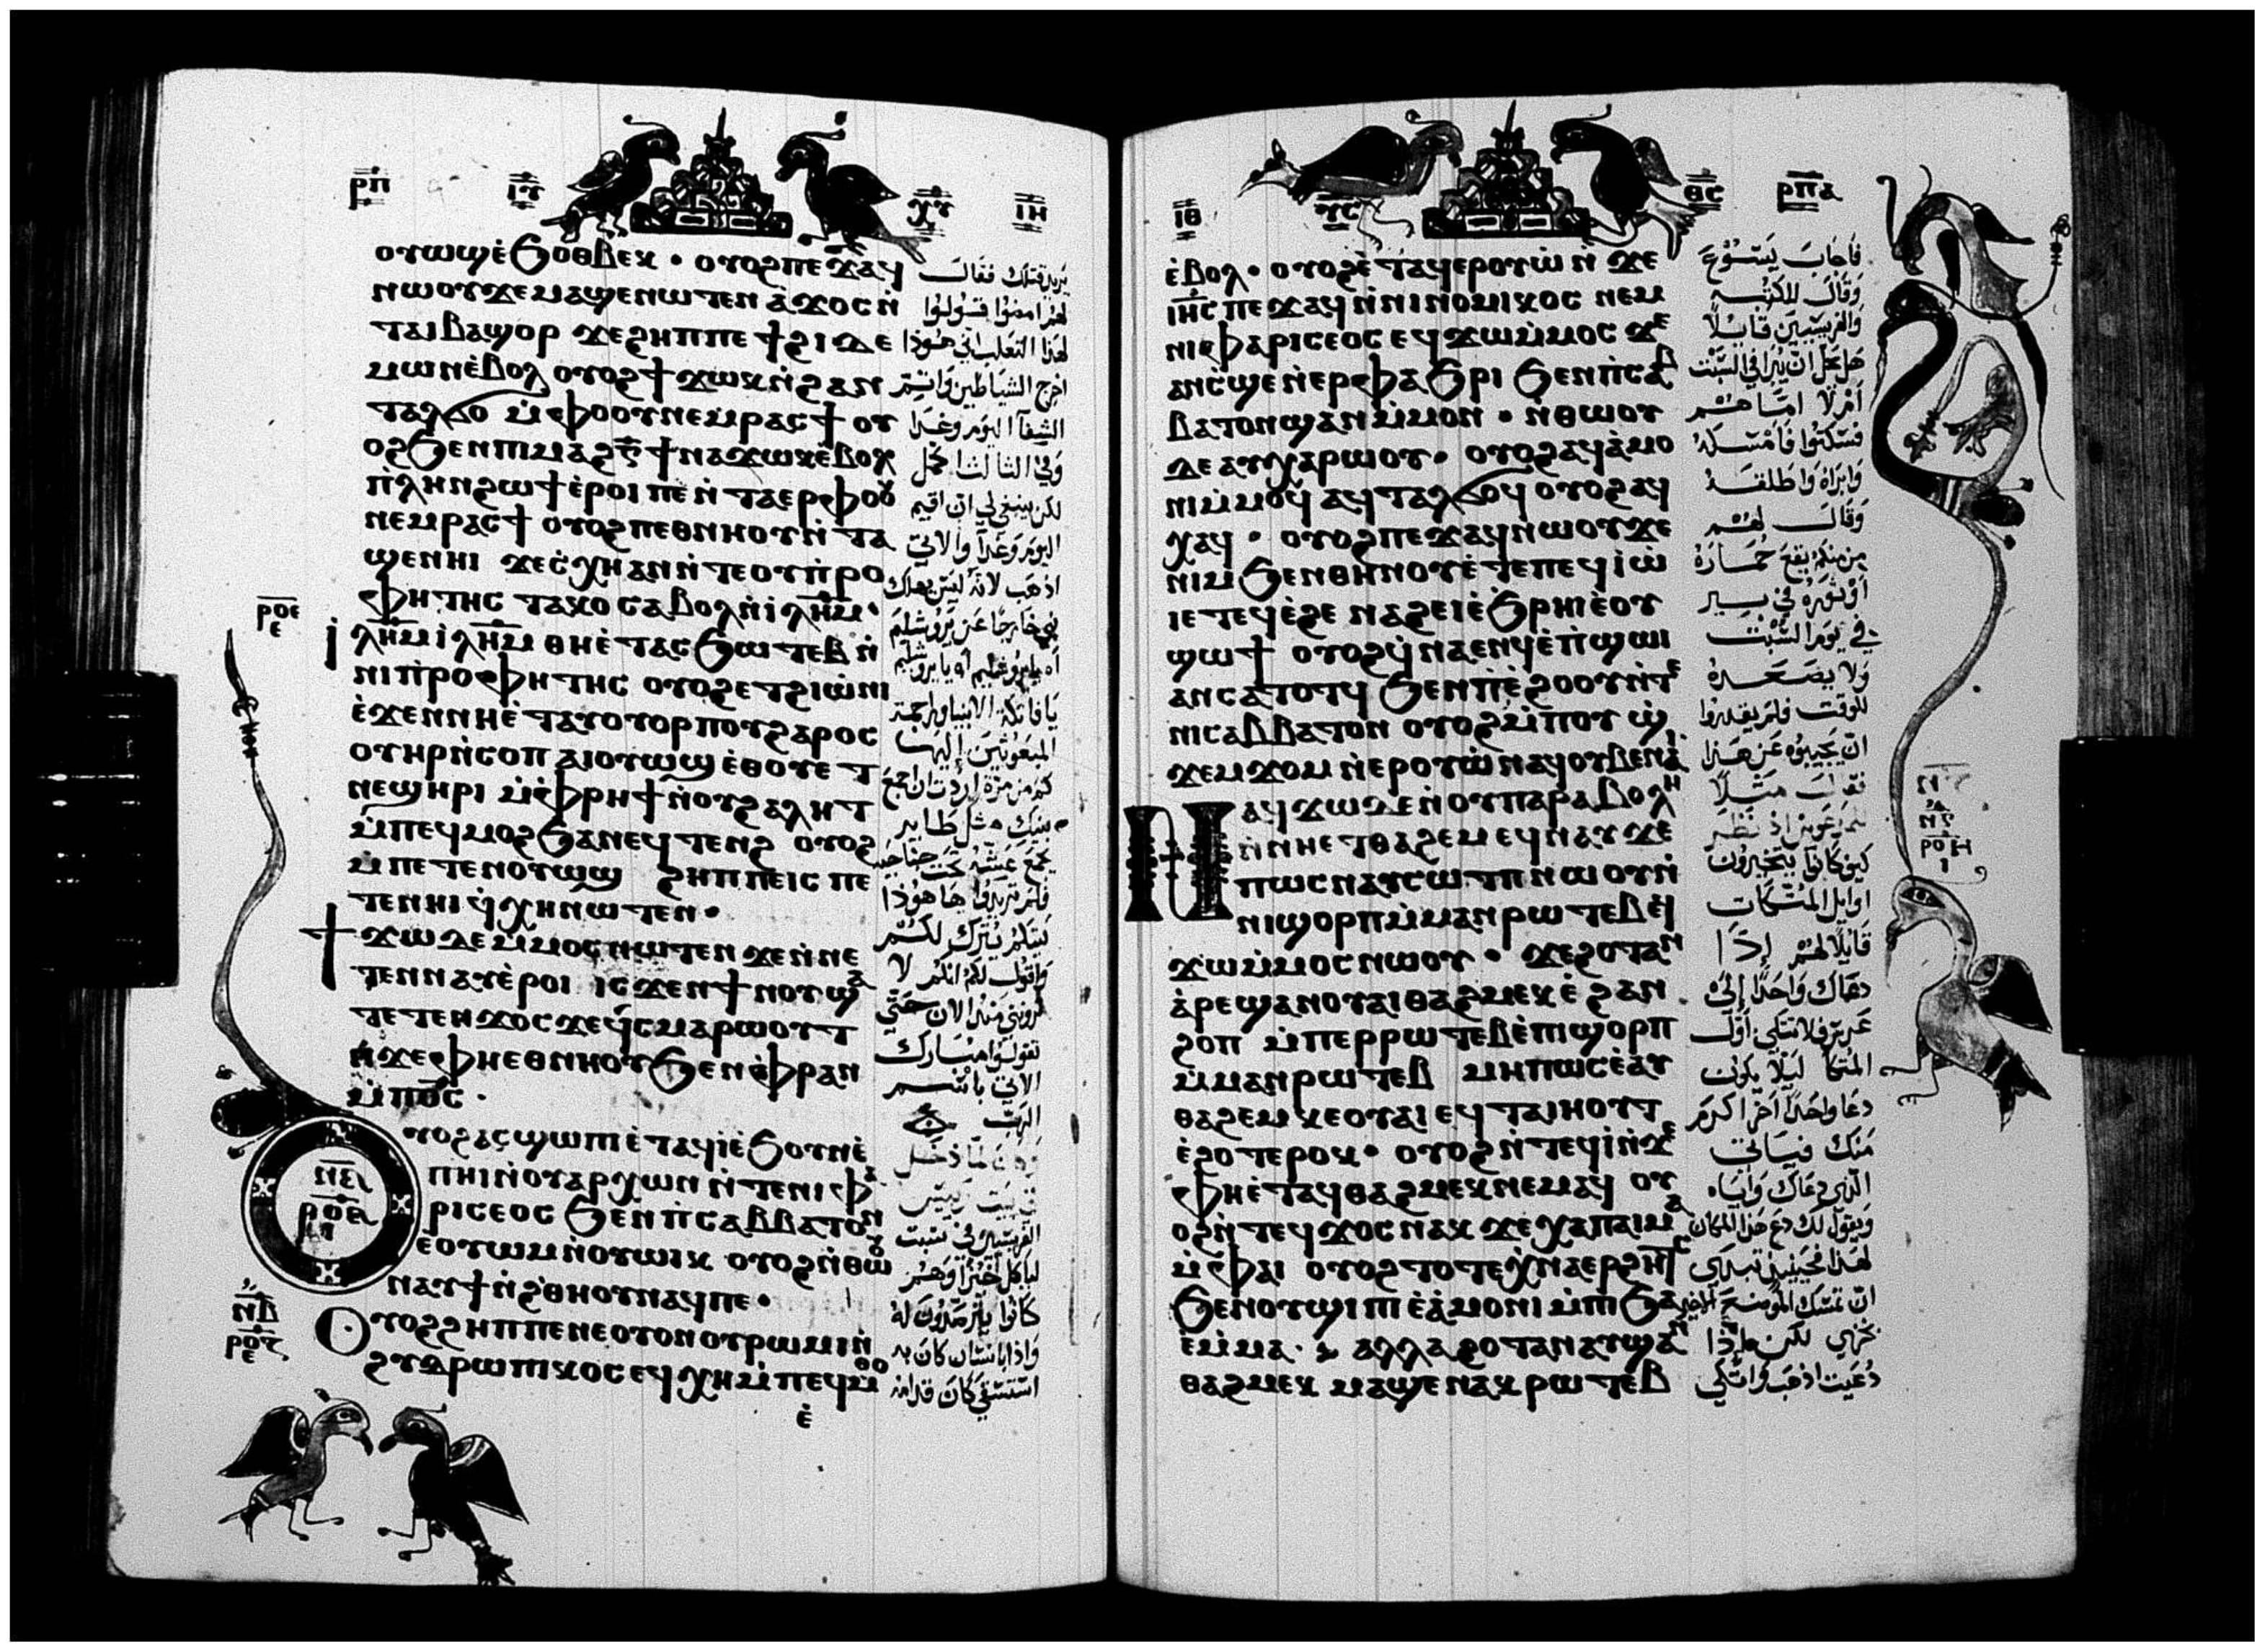 ⲣⲡ ⲓⲩ ⲭⲩ ⲓⲏ
ⲟⲩⲱϣⲉ̀ϧⲟⲑⲃⲉⲕ · ⲟⲩⲟϩⲡⲉϫⲁϥ
ⲛⲱⲟⲩϫⲉⲙⲁϣⲉⲛⲱⲧⲉⲛ ⲁ̀ϫⲟⲥⲛ̀
ⲧⲁⲓⲃⲁϣⲟⲣ ϫⲉϩⲏⲡⲡⲉ ϯϩⲓⲇⲉ
ⲙⲱⲛⲉ̀ⲃⲟⲗ ⲟⲩⲟϩϯϫⲱⲕⲛ̀ϩⲁⲛ
ⲧⲁⲗϭⲟ ⲙ̀ⲫⲟⲟⲩⲛⲉⲙⲣⲁⲥϯ ⲟⲩ
ⲟϩϧⲉⲛⲡⲓⲙⲁϩⲅ̄ ϯⲛⲁϫⲱⲕⲉ̀ⲃⲟⲗ
ⲡ̀ⲗⲏⲛϩⲱϯⲉ̀ⲣⲟⲓ ⲡⲉ ⲛ̀ⲧⲁⲉⲣⲫⲟⲟⲩ
ⲛⲉⲙⲣⲁⲥϯ ⲟⲩⲟϩⲡⲉⲑⲛⲏⲟⲩⲛ̀ⲧⲁ
ϣⲉⲛⲏⲓ ϫⲉⲥ̀ⲭⲏⲁⲛⲛ̀ⲧⲉⲟⲩⲡ̀ⲣⲟ
ⲫⲏⲧⲏⲥ ⲧⲁⲕⲟ ⲥⲁⲃⲟⲗⲛ̀ⲓⲗ̅ⲏ̅ⲙ̅ ·
ⲓ̀ⲗ̅ⲏ̅ⲙ̅ ⲓ̀ⲗ̅ⲏ̅ⲙ̅ ⲑⲏⲉ̀ⲧⲁⲥϧⲱⲧⲉⲃ ⲛ̀
ⲛⲓⲡ̀ⲣⲟⲫⲏⲧⲏⲥ ⲟⲩⲟϩⲉⲧϩⲓⲱ̀ⲛⲓ
ⲉ̀ϫⲉⲛⲛⲏⲉ̀ⲧⲁⲩⲟⲩⲟⲣⲡⲟⲩϩⲁⲣⲟⲥ
ⲟⲩⲏⲣⲛ̀ⲥⲟⲡ ⲁⲓⲟⲩⲱϣ ⲉ̀ⲑⲟⲩⲉⲧ
ⲛⲉϣⲏⲣⲓ ⲙ̀ⲫⲣⲏϯ ⲛ̀ⲟⲩϩⲁⲗⲏⲧ
ⲙ̀ⲡⲉϥⲙⲟϩϧⲁⲛⲉϥⲧⲉⲛϩ ⲟⲩⲟϩ
ⲙⲡⲉⲧⲉⲛⲟⲩⲱϣ ϩⲏⲡⲡⲉⲓⲥ ⲡⲉ
ⲧⲉⲛⲏⲓ ϥ̀ⲭⲏⲛⲱⲧⲉⲛ ·
ϯϫⲱⲇⲉⲙ̀ⲙⲟⲥⲛⲱⲧⲉⲛ ϫⲉⲛ̀ⲛⲉ
ⲧⲉⲛⲛⲁⲩⲉ̀ⲣⲟⲓ ⲓⲥϫⲉⲛϯⲛⲟⲩϣⲁ
ⲧⲉⲧⲉⲛϫⲟⲥϫⲉϥ̀ⲥⲙⲁⲣⲱⲟⲩⲧ
ⲛ̀ϫⲉⲫⲏⲉⲑⲛⲏⲟⲩϧⲉⲛⲫ̀ⲣⲁⲛ
ⲙ̀ⲡⲟ̅ⲥ̅ ·
ⲟⲩⲟϩⲁⲥϣⲱⲡⲓ ⲉ̀ⲧⲁϥⲓ̀ⲉ̀ϧⲟⲩⲛⲉ̀
ⲡⲏⲓⲛ̀ⲟⲩⲁⲣⲭⲱⲛ ⲛ̀ⲧⲉⲛⲓⲫⲁ
ⲣⲓⲥⲉⲟⲥ ϧⲉⲛⲡ̀ⲥⲁⲃⲃⲁⲧⲟⲛ
ⲉ̀ⲟⲩⲱⲙⲛ̀ⲟⲩⲱⲓⲕ ⲟⲩⲟϩⲛ̀ⲑⲱⲟⲩ
ⲛⲁⲩϯⲛ̀ϩ̀ⲑⲏⲟⲩⲛⲁϥⲡⲉ ·
ⲟⲩⲟϩϩⲏⲡⲡⲉⲛⲉⲟⲩⲟⲛⲟⲩⲣⲱⲙⲓⲛ̀
ϩⲩⲇⲣⲱⲡⲓⲕⲟⲥ ⲉϥⲭⲏⲙ̀ⲡⲉϥⲙ̀ⲑⲟ
ⲉ̀
يريد قتلك فقال
لهم امضوا قولوا
لهذا الثعلب اني هوذا
اخرج الشياطين واتم
الشفا اليوم وغدا
وفي الثالث اكمل
لكن ينبغي لي ان اقيم
اليوم وغدا والاتي
اذهب لانه ليس يهلك
نبي خارجا عن يروشليم
يا قاتلة الانبيا وراجمة
المبعوثين اليها
كم من مرة اردت ان اجمع
بنيك مثل طاير
يجمع عشه تحت جناحيه
فلم تريدوا ها هوذا
بيتكم يترك لكم
واقول لكم انكم لا
ترونني منذ الان حتى
تقولوا مبارك
الاتي باسم
الرب
الفريسيين في سبت
لياكل خبزا وهم
كانوا يترصدون له
واذا بانسان كان به
استسقا كان قدامه
ⲓⲑ ⲩⲥ ⲑⲥ ⲣⲡⲁ
ⲉ̀ⲃⲟⲗ · ⲟⲩⲟϩⲉ̀ⲧⲁϥⲉⲣⲟⲩⲱ̀ ⲛ̀ϫⲉ
ⲓ̅ⲏ̅ⲥ̅ ⲡⲉϫⲁϥⲛ̀ⲛⲓⲛⲟⲙⲓⲕⲟⲥ ⲛⲉⲙ
ⲛⲓⲫⲁⲣⲓⲥⲉⲟⲥ ⲉϥϫⲱⲙ̀ⲙⲟⲥ ϫⲉ
ⲁⲛⲥ̀ϣⲉⲛ̀ⲉⲣⲫⲁϧⲣⲓ ϧⲉⲛⲡ̀ⲥⲁⲃ
ⲃⲁⲧⲟⲛϣⲁⲛⲙ̀ⲙⲟⲛ · ⲛ̀ⲑⲱⲟⲩ
ⲇⲉ ⲁⲩⲭⲁⲣⲱⲟⲩ · ⲟⲩⲟϩⲁϥⲁ̀ⲙⲟ
ⲛⲓⲙ̀ⲙⲟϥ ⲁϥⲧⲁⲗϭⲟϥ ⲟⲩⲟϩⲁϥ
ⲭⲁϥ · ⲟⲩⲟϩⲡⲉϫⲁϥⲛⲱⲟⲩϫⲉ
ⲛⲓⲙ ϧⲉⲛⲑⲏⲛⲟⲩⲉ̀ⲧⲉⲡⲉϥⲓⲱ̀
ⲓⲉ ⲧⲉϥⲉ̀ϩⲉ ⲛⲁϩⲉⲓⲉ̀ϧⲣⲏⲓⲉ̀ⲟⲩ
ϣⲱϯ ⲟⲩⲟϩϥ̀ⲛⲁⲉⲛϥⲉ̀ⲡ̀ϣⲱⲓ
ⲁⲛⲥⲁⲧⲟⲧϥ ϧⲉⲛⲡⲉ̀ϩⲟⲟⲩⲛ̀ⲧⲉ
ⲛⲓⲥⲁⲃⲃⲁⲧⲟⲛ ⲟⲩⲟϩⲙ̀ⲡⲟⲩϣ̀
ϫⲉⲙϫⲟⲙ ⲛ̀ⲉⲣⲟⲩⲱ̀ⲛⲁϥⲟⲩⲃⲉⲛⲁⲓ
ⲛⲁϥϫⲱⲇⲉⲛ̀ⲟⲩⲡⲁⲣⲁⲃⲟⲗⲏ
ⲛ̀ⲛⲏⲉⲧⲑⲁϩⲉⲙ ⲉϥⲛⲁⲩ ϫⲉ
ⲡⲱⲥ ⲛⲁⲩⲥⲱⲧⲡ ⲛⲱⲟⲩⲛ̀
ⲛⲓϣⲟⲣⲡⲙ̀ⲙⲁⲛⲣⲱⲧⲉⲃ ⲉϥ
ϫⲱⲙ̀ⲙⲟⲥⲛⲱⲟⲩ · ϫⲉϩⲟⲧⲁⲛ
ⲁ̀ⲣⲉϣⲁⲛⲟⲩⲁⲓⲑⲁϩⲙⲉⲕ ⲉ̀ϩⲁⲛ
ϩⲟⲡ ⲙ̀ⲡⲉⲣⲣⲱⲧⲉⲃⲉ̀ⲡⲓϣⲟⲣⲡ
ⲙ̀ⲙⲁⲛⲣⲱⲧⲉⲃ ⲙⲏⲡⲱⲥⲉ̀ⲁⲩ
ⲑⲁϩⲉⲙ ⲕⲉⲟⲩⲁⲓ ⲉϥⲧⲁⲓⲏⲟⲩⲧ
ⲉ̀ϩⲟⲧⲉⲣⲟⲕ · ⲟⲩⲟϩⲛ̀ⲧⲉϥⲓ̀ⲛ̀ϫⲉ
ⲫⲏⲉ̀ⲧⲁϥⲑⲁϩⲙⲉⲕⲛⲉⲙⲁϥ ⲟⲩ
ⲟϩⲛ̀ⲧⲉϥϫⲟⲥ ⲛⲁⲕ ϫⲉ ⲭⲁⲡⲁⲓⲙⲁ
ⲙ̀ⲫⲁⲓ ⲟⲩⲟϩ ⲧⲟⲧⲉ ⲭ̀ⲛⲁⲉⲣϩⲏⲧⲥ
ϧⲉⲛⲟⲩϣⲓⲡⲓ ⲉ̀ⲁ̀ⲙⲟⲛⲓ ⲙ̀ⲡⲓϧⲁ
ⲉ̀ⲙ̀ⲙⲁ · ⲁⲗⲗⲁ ϩⲟⲧⲁⲛⲁⲩϣⲁⲛ
ⲑⲁϩⲙⲉⲕ ⲙⲁϣⲉ ⲛⲁⲕ ⲣⲱⲧⲉⲃ
فاجاب يسوع
وقال للكتبة
والفريسيين قايلا
هل يحل ان يبرا في السبت
ام لا اما هم
فسكتوا فامسكه
وابراه واطلقه
وقال لهم
من منكم يقع حماره
او ثوره في بير
في يوم السبت
ولا يصعده
للوقت فلم يقدروا
ان يجيبوه عن هذا
فقال مثلا
كيف كانوا يتخيرون
اوايل المتكات
قايلا لهم اذا
دعاك واحدا الى
عرس فلا تتكي اول
المتكا ليلا يكون
دعا واحدا اخر اكرم
منك فياتي
الذي دعاك واياه
ويقول لك دع هذا المكان
لهذا فحينيذ تبتدي
بخزي لكن اذا
دعيت اذهب واتكي